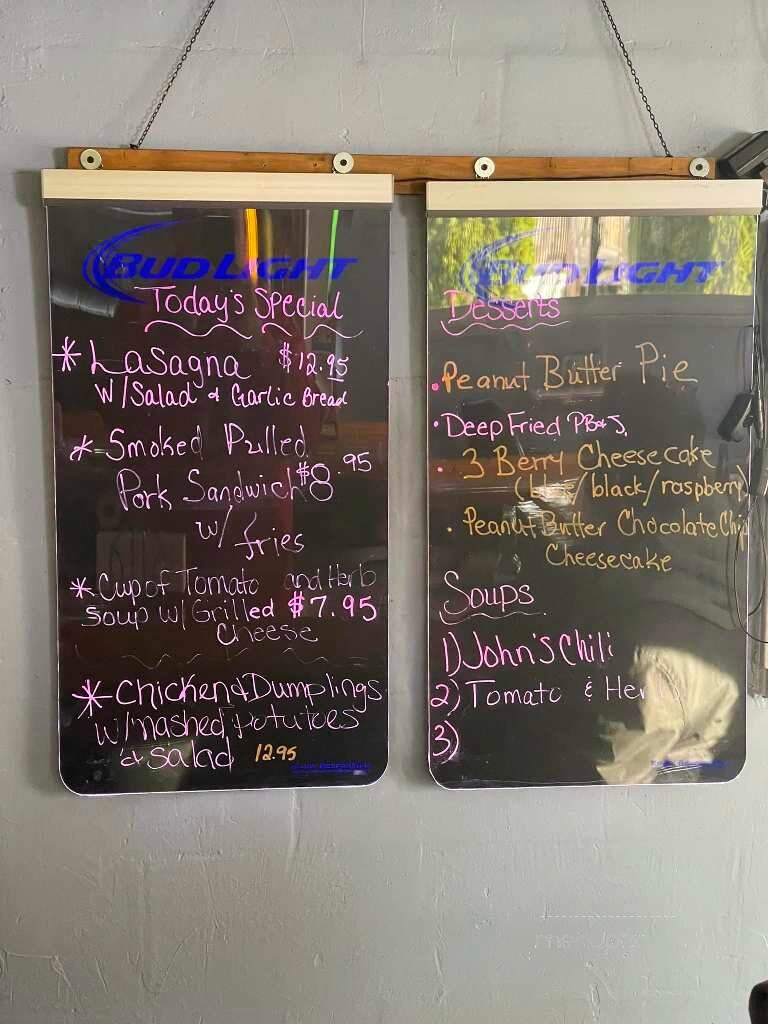 BUD LIGHT
Today's Special
* Lasagna $12.95
W/Salad & Garlic Bread
* Smoked Pulled
Pork Sandwich $8.95
w/ fries
* Cup of Tomato and Herb
Soup w/ Grilled $7.95
Cheese
* Chicken & Dumplings
w/mashed potatoes
& salad 12.95
BUD LIGHT
Desserts
• Peanut Butter Pie
• Deep Fried PB&J
• 3 Berry Cheesecake
/black/raspberry)
• Peanut Butter Chocolate Chip
Cheesecake
Soups
1) John's Chili
2) Tomato & Herb
3)